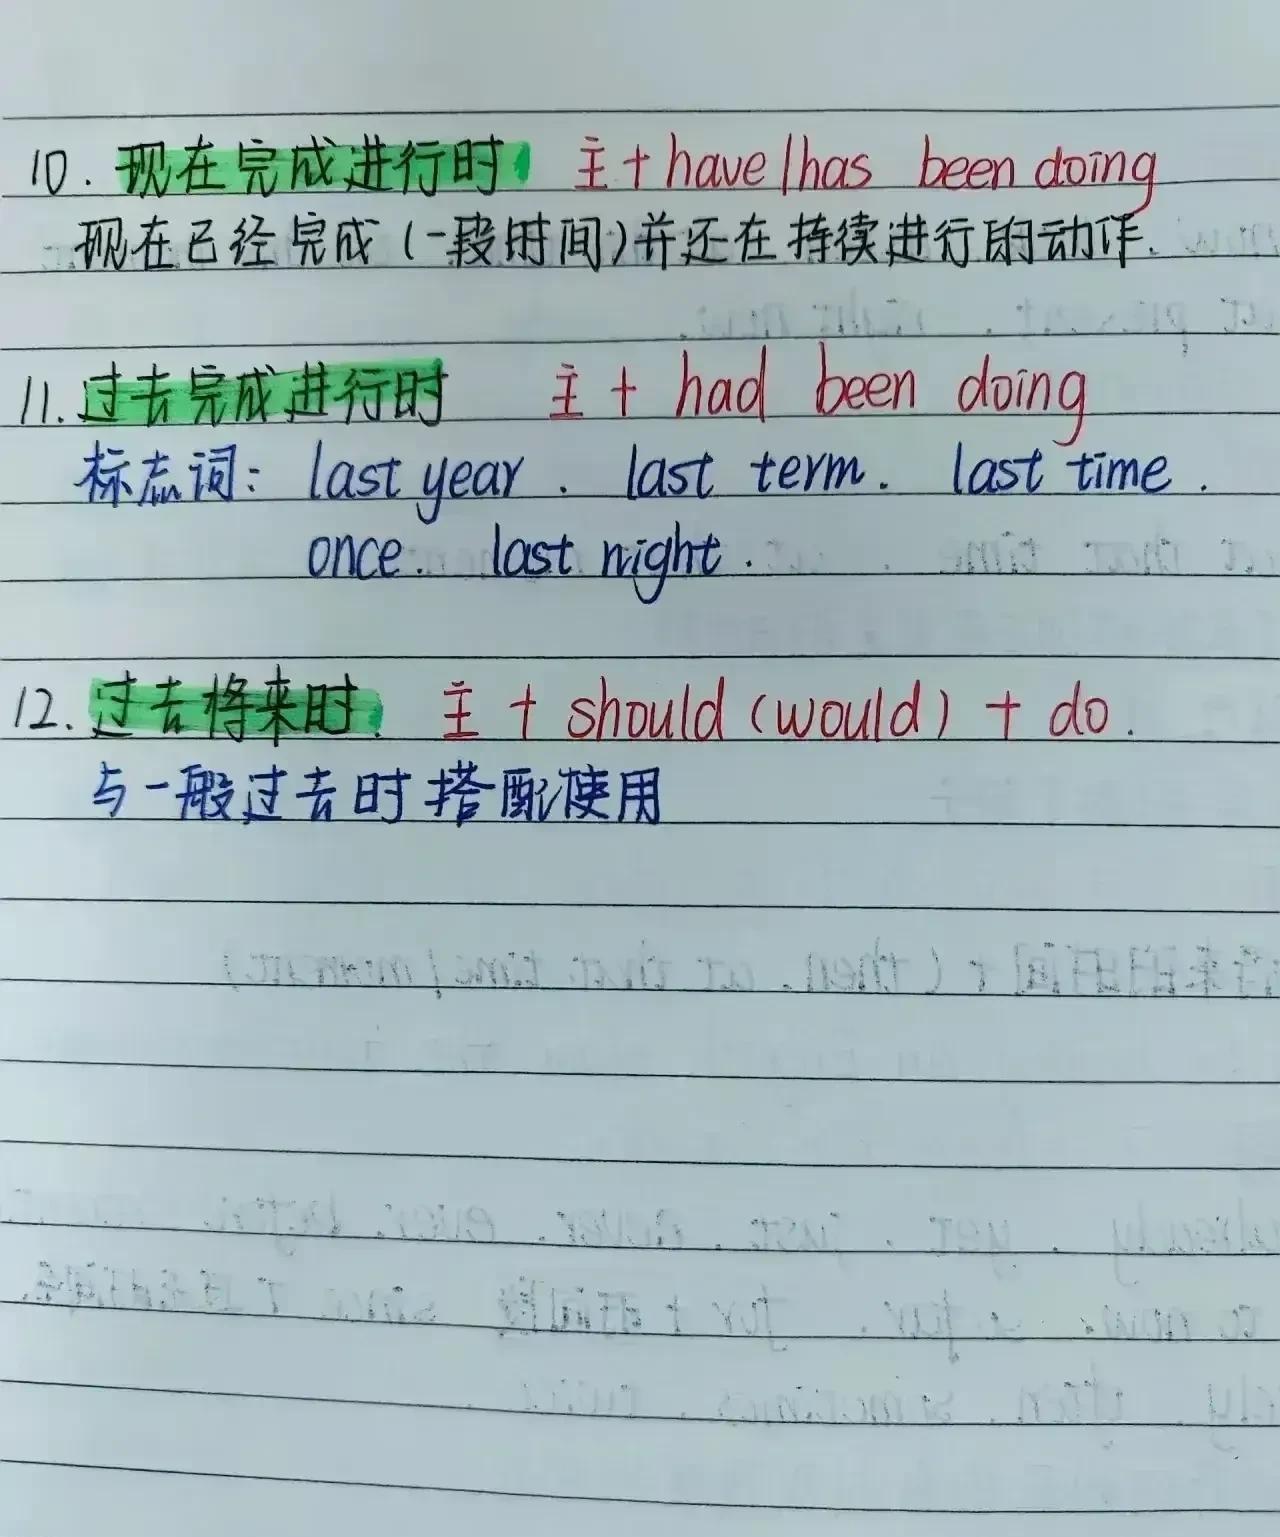 10. 现在完成进行时 主+have/has been doing
现在已经完成(一段时间)并还在持续进行的动作.
11. 过去完成进行时 主+ had been doing
标志词: last year . last term. last time .
once. last night .
12. 过去将来时 主 + should (would) + do .
与一般过去时搭配使用